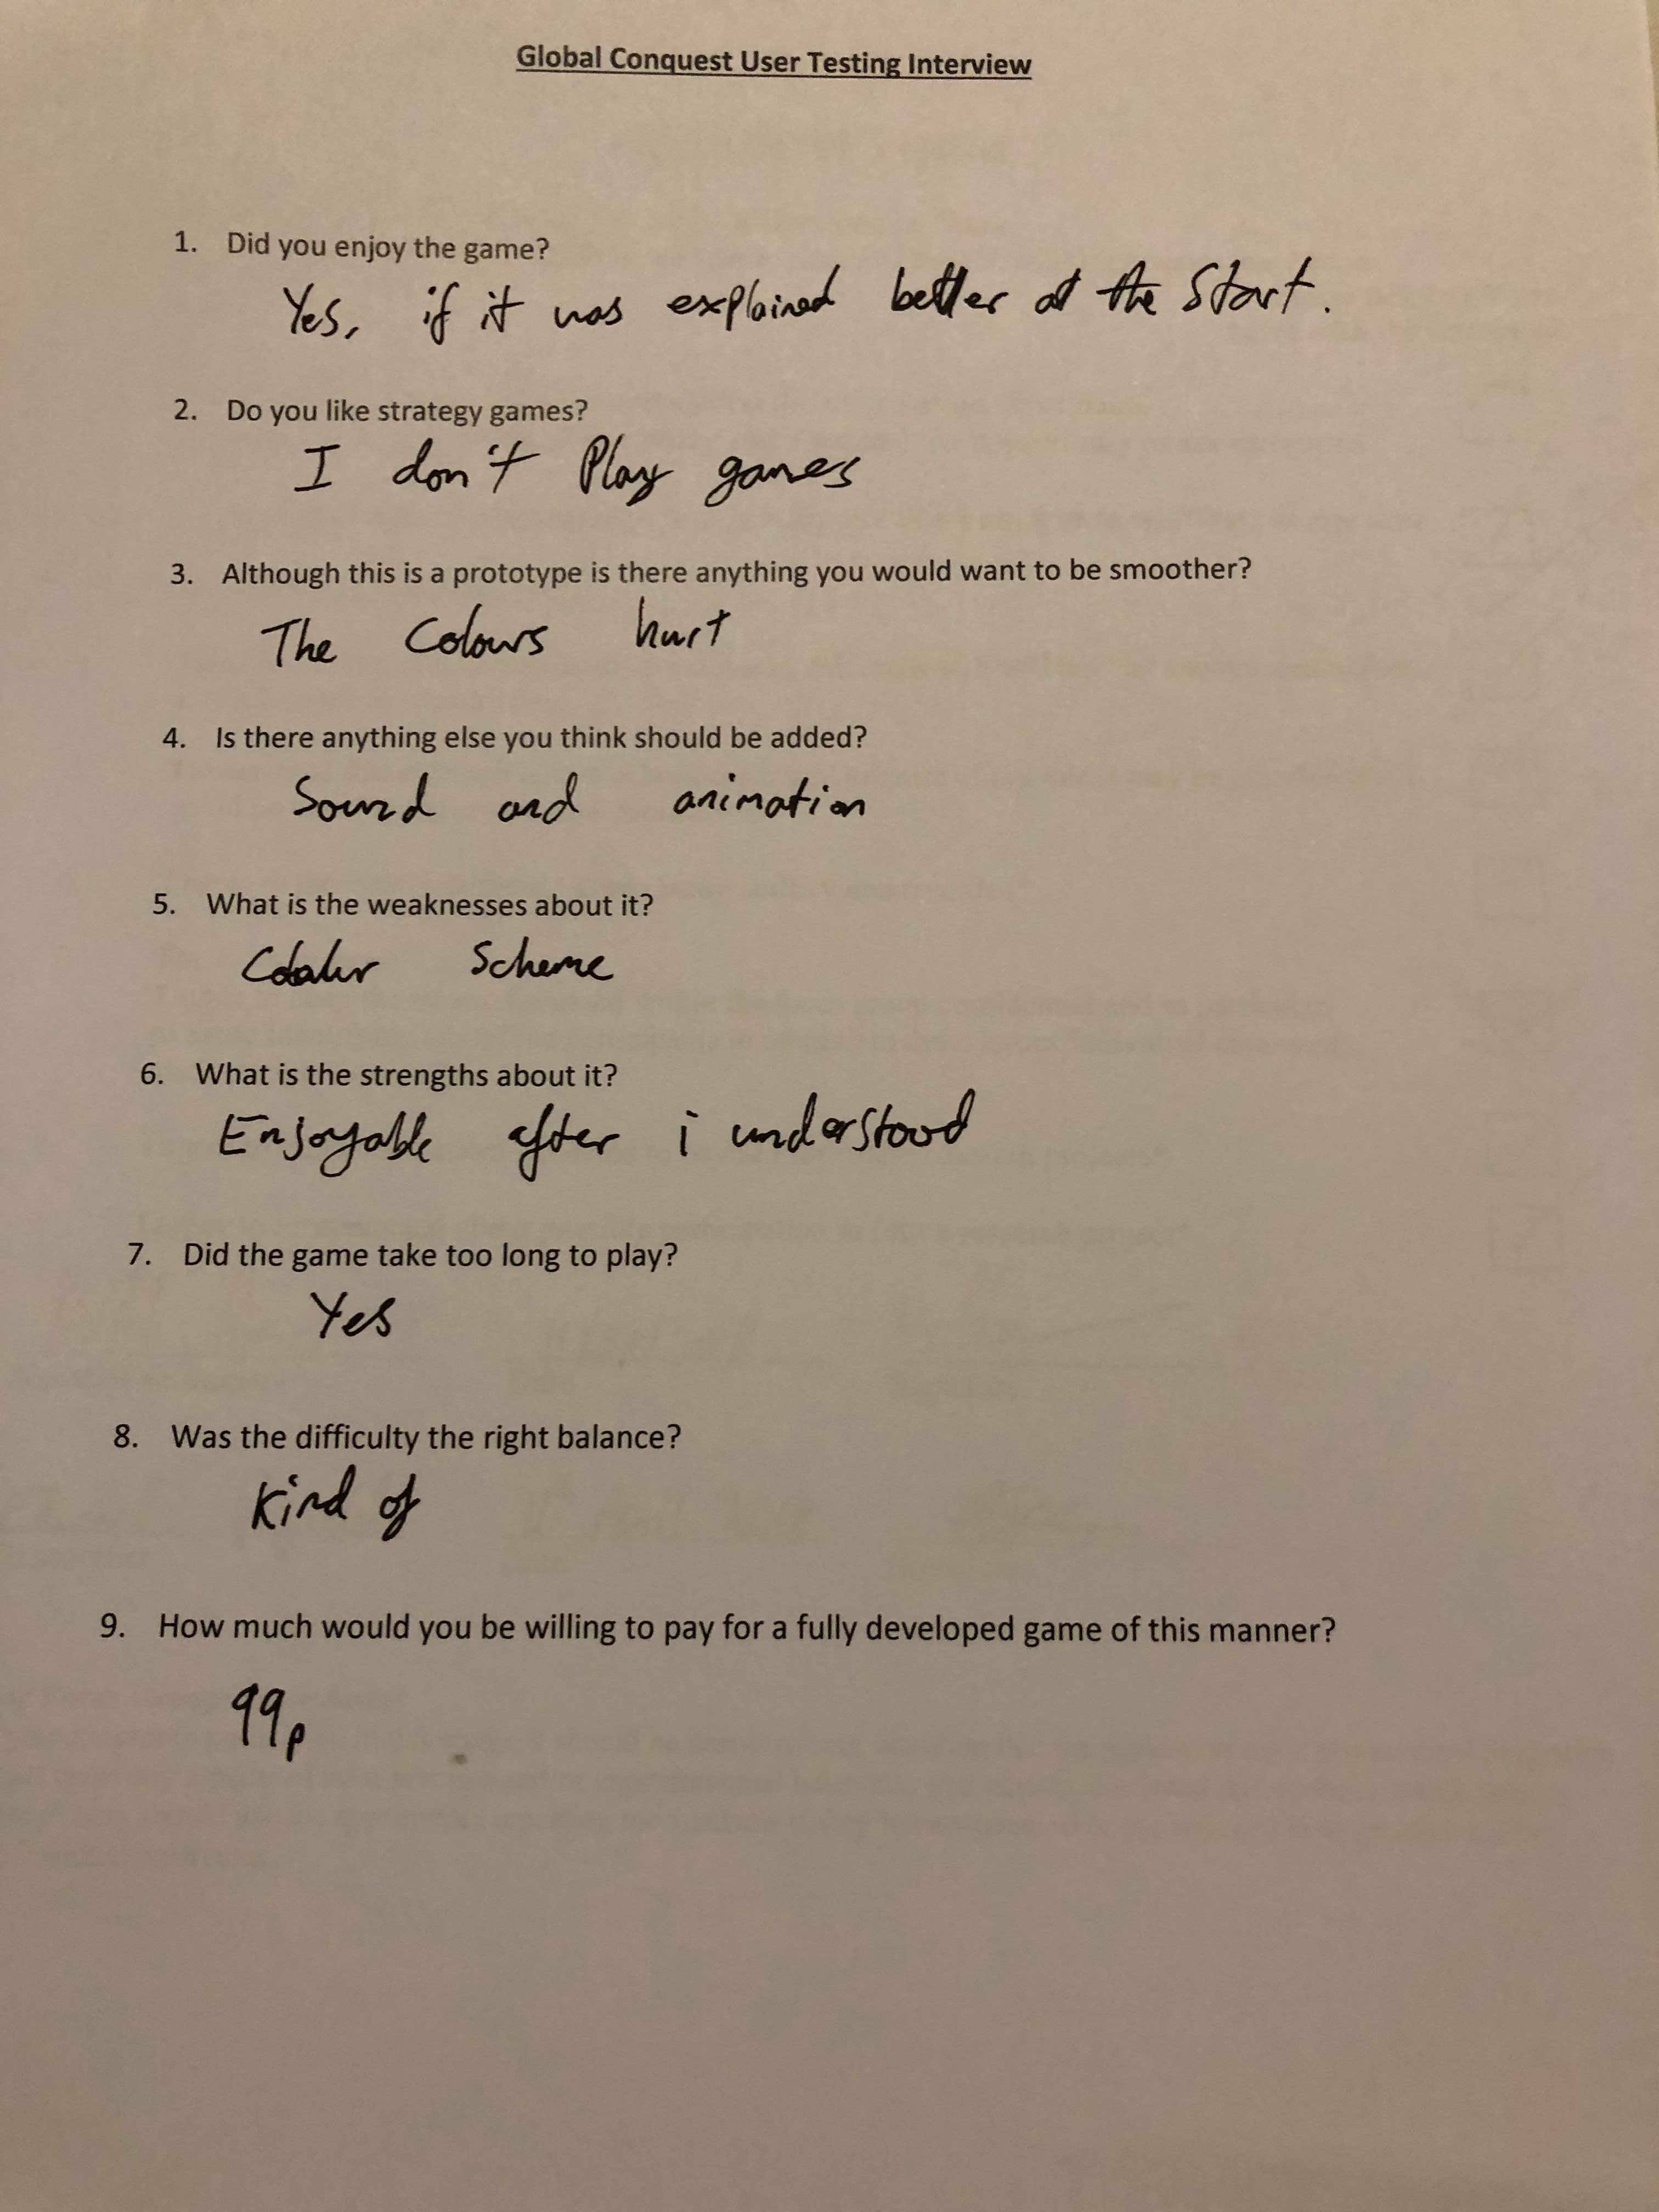 Global Conquest User Testing Interview
1. Did you enjoy the game?
Yes, if it was explained better at the Start.
2. Do you like strategy games?
I don't Play games
3. Although this is a prototype is there anything you would want to be smoother?
The Colours hurt
4. Is there anything else you think should be added?
Sound and animation
5. What is the weaknesses about it?
Scheme
6. What is the strengths about it?
Enjoyable after i understood
7. Did the game take too long to play?
Yes
8. Was the difficulty the right balance?
Kind of
9. How much would you be willing to pay for a fully developed game of this manner?
99p